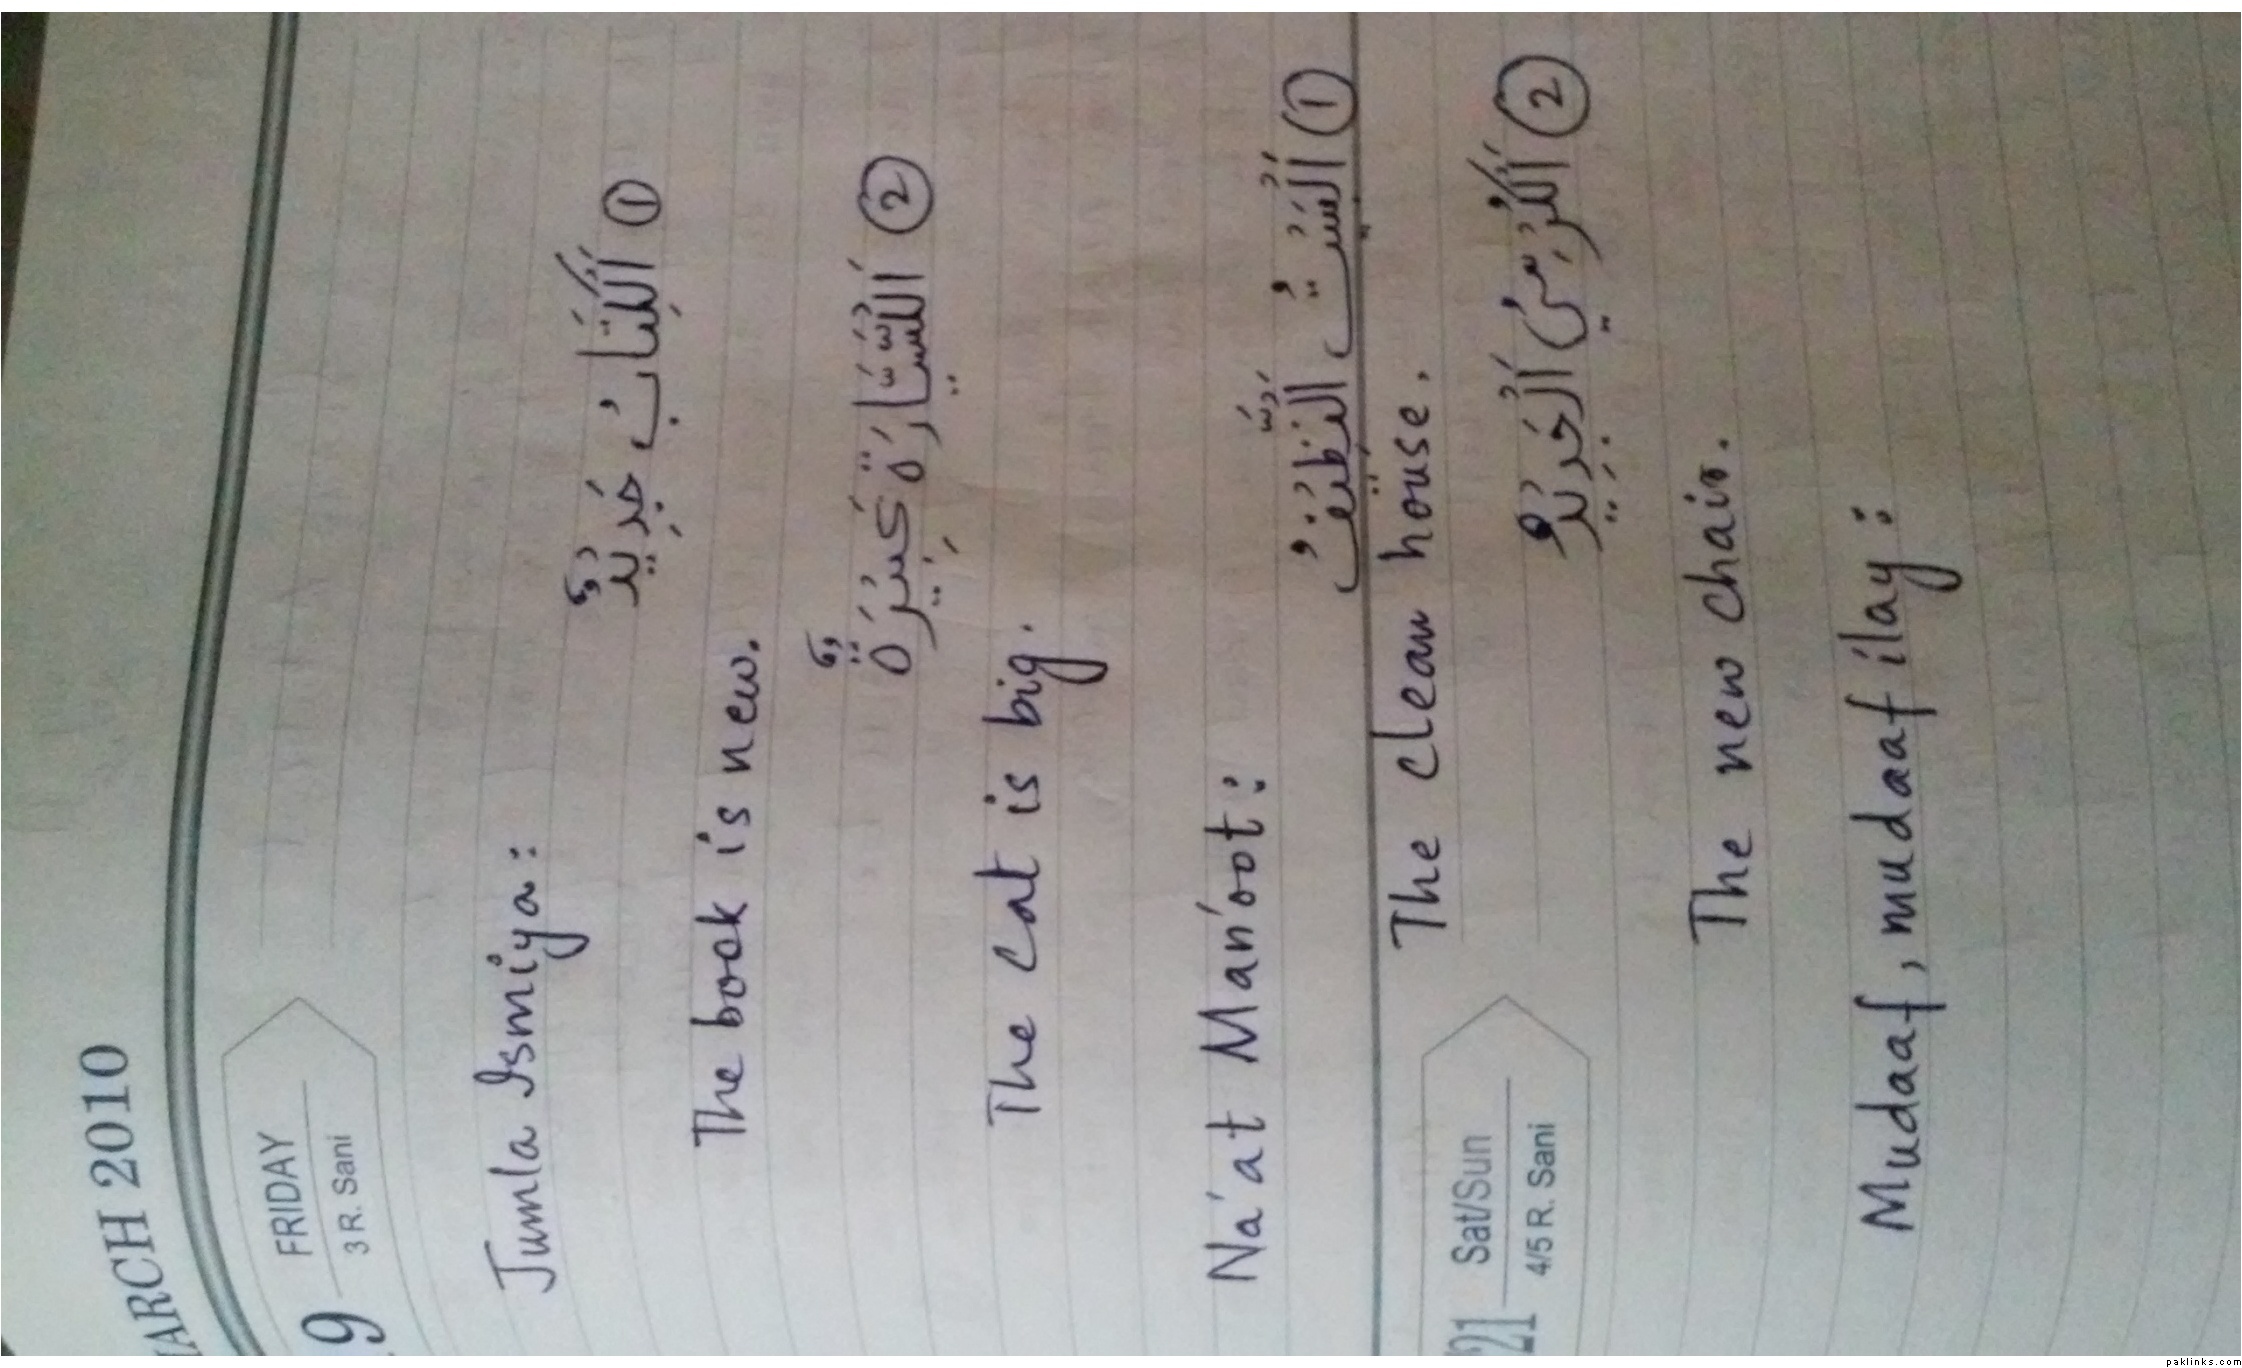 MARCH 2010
FRIDAY
3 R. Sani
Jumla Ismiya:
① اَلْكِتَابُ جَدِيْدٌ
The book is new.
② اَلْسَّيَّارَةُ كَبِيْرَةٌ
The cat is big.
Na'at Man'oot:
① اَلْبَيْتُ النَّظِيْفُ
The clean house.
21 Sat/Sun
4/5 R. Sani
② اَلْكُرْسِيُ اَلْجَدِيْدُ
The new chair.
Mudaaf, mudaaf ilay:
paklinks.com